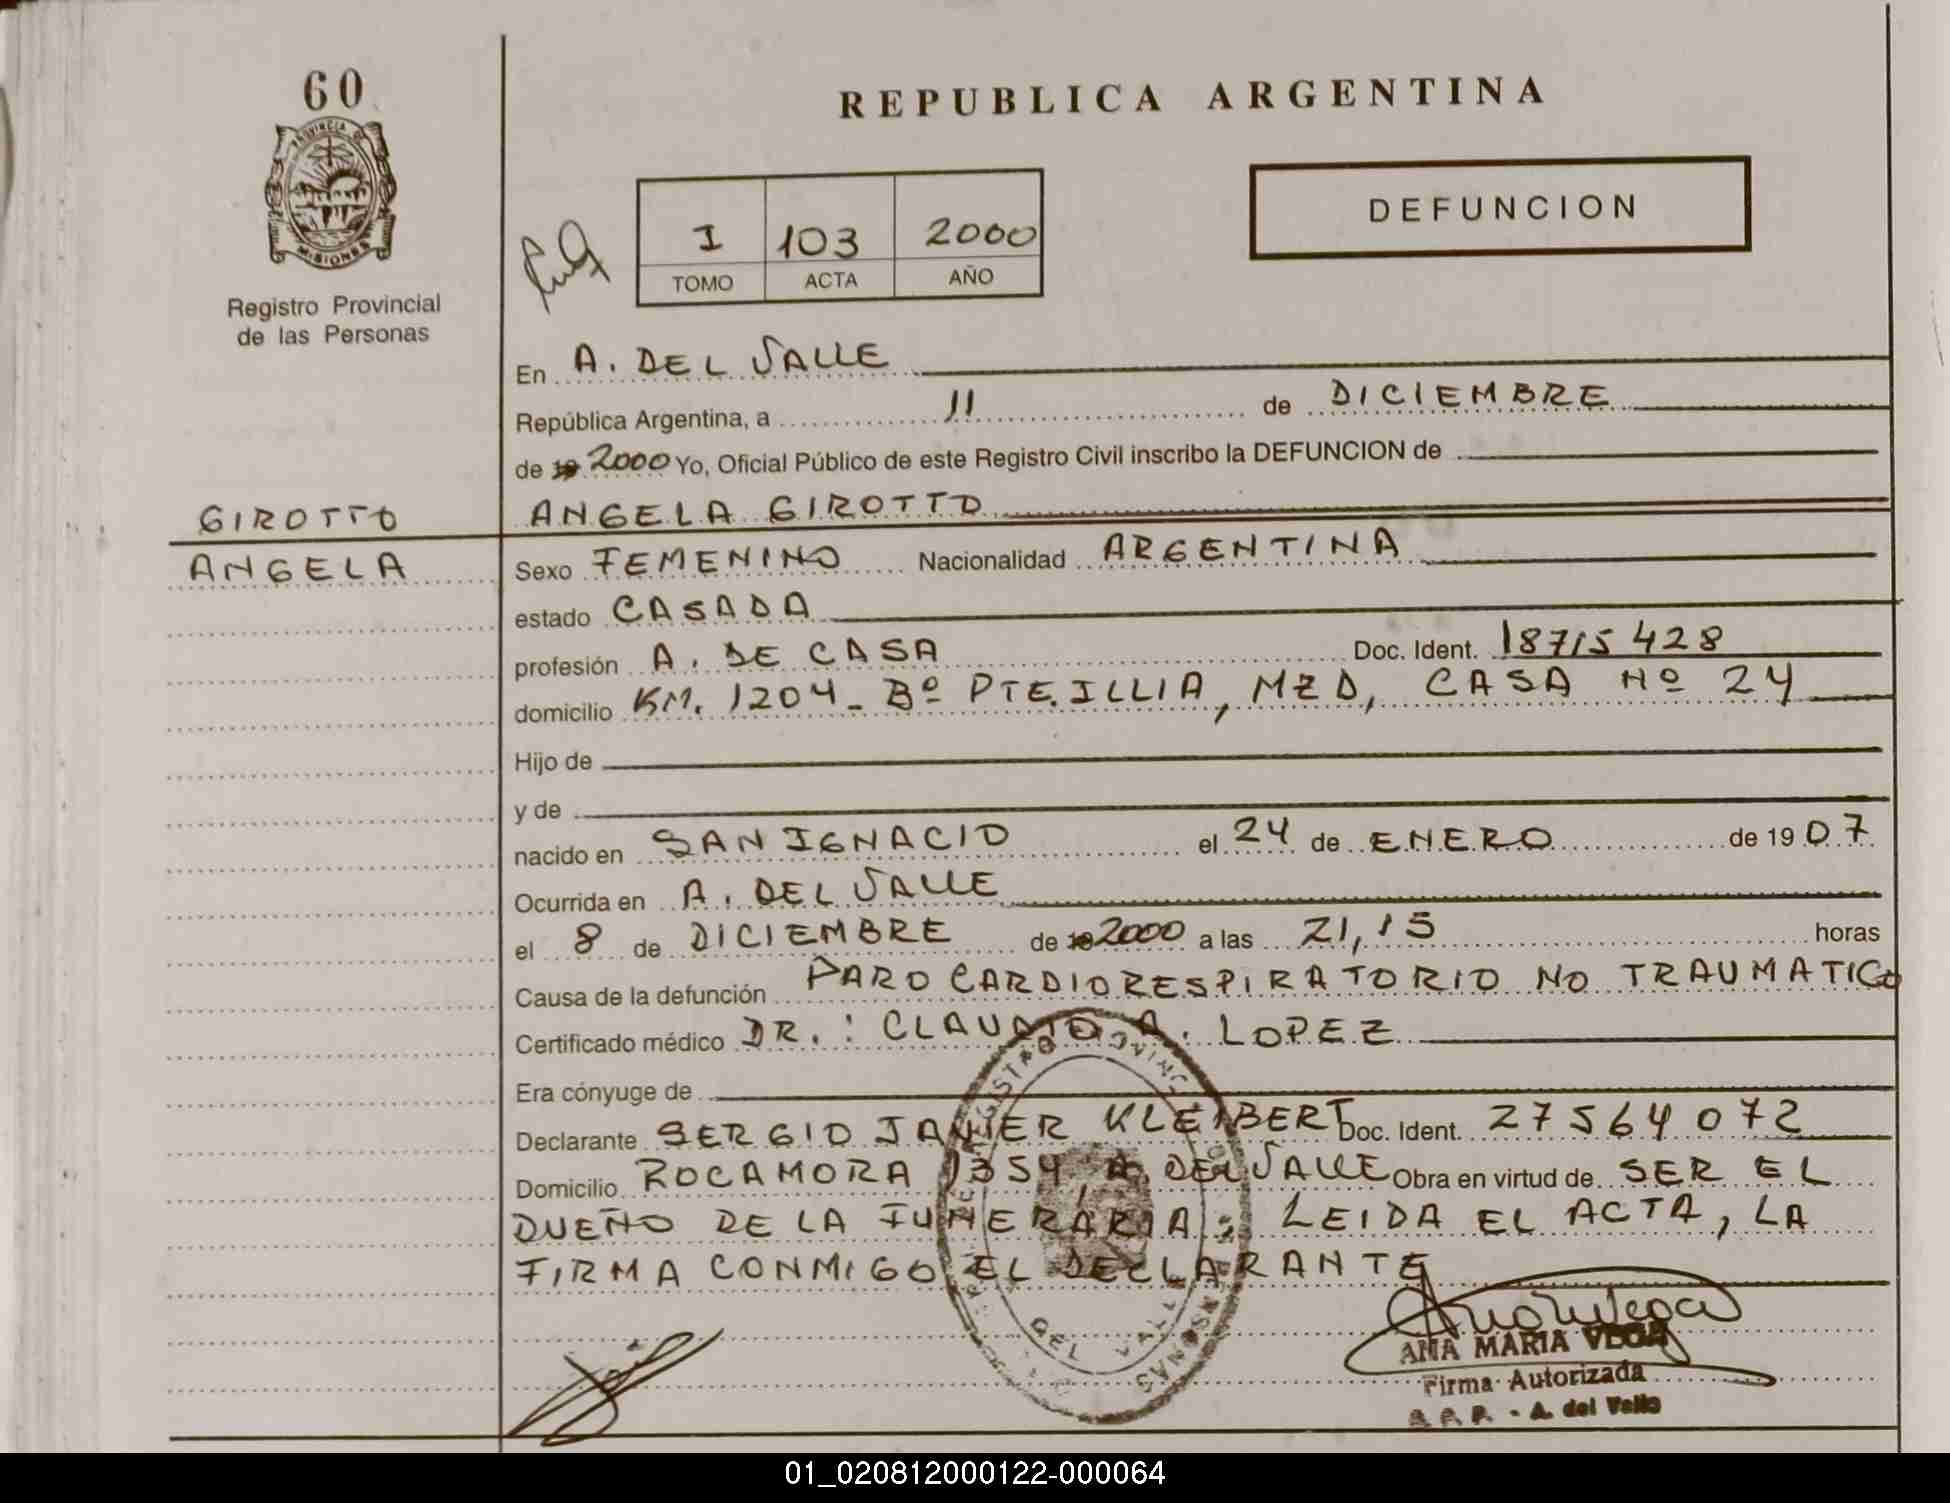 60
PROVINCIA DE
MISIONES
Registro Provincial
de las Personas
REPUBLICA ARGENTINA
DEFUNCION
I 103 2000
TOMO ACTA AÑO
En A. DEL VALLE
República Argentina, a 11 de DICIEMBRE
de 19 2000 Yo, Oficial Público de este Registro Civil inscribo la DEFUNCION de
GIROTTO
ANGELA
ANGELA GIROTTO
Sexo FEMENINO Nacionalidad ARGENTINA
estado CASADA
profesión A. DE CASA Doc. Ident. 18715428
domicilio KM. 1204 - Bº PTE. ILLIA, MZ D, CASA Nº 24
Hijo de
y de
nacido en SAN IGNACIO el 24 de ENERO de 1907
Ocurrida en A. DEL VALLE
el 8 de DICIEMBRE de 19 2000 a las 21,15 horas
Causa de la defunción PARO CARDIORESPIRATORIO NO TRAUMATICO
Certificado médico DR.: CLAUDIO A. LOPEZ
Era cónyuge de
Declarante SERGIO JAVIER KLEIBERT Doc. Ident. 27564072
Domicilio ROCAMORA 1354, A. DEL VALLE Obra en virtud de SER EL
DUEÑO DE LA FUNERARIA; LEIDA EL ACTA, LA
FIRMA CONMIGO EL DECLARANTE
DEL VALLE
ANA MARIA VEGA
Firma Autorizada
R. P. P. - A. del Valle
01_020812000122-000064